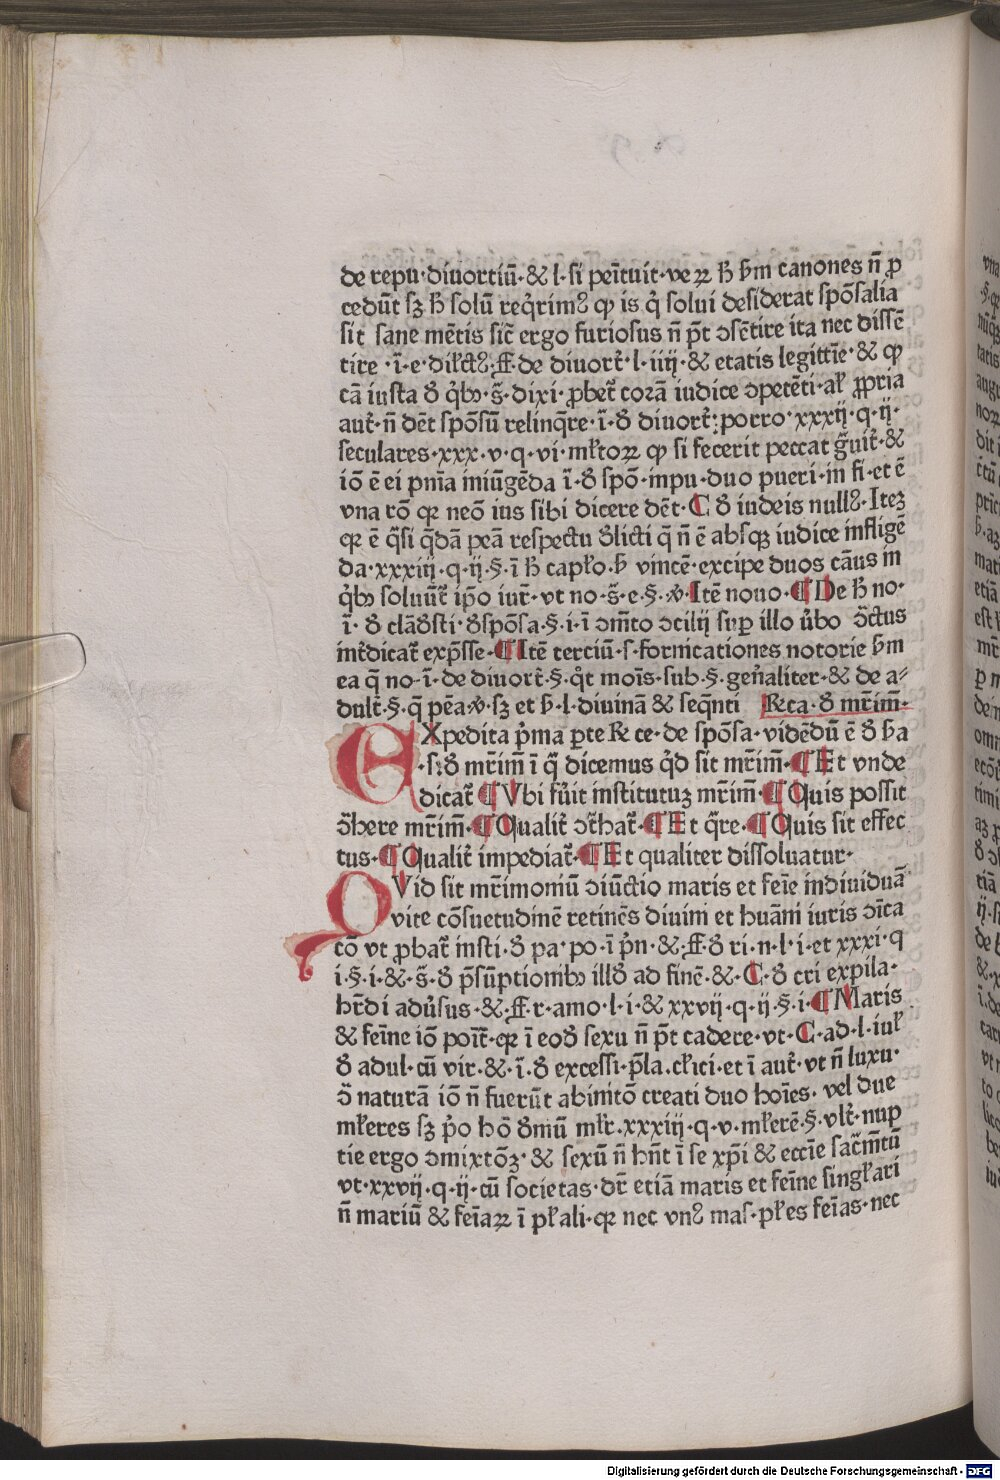 de repu·diuortiū·& l·si peītuit·ve ꝝ ħ ƀm canones n̄ ꝓ
cedūt sꝫ ħ solū reqͥrimꝰ ꝙ is qͥ solui desiderat spōsalia
sit sane mētis sic̄ ergo furiosus n̄ pt̄ ↄsētire ita nec dissē
tire ·ī·e·dilctꝰ·ff·de diuort̄·l·iiij·& etatis legittīe·& ꝙ
cā iusta ꝺ̄ qͥbꝰ·s̄·dixi·ꝓbet̄ corā iudice ↄpetēti·al̄ ꝓpria
aut̄·n̄ dēt spōsū relinq̄re·ī·ꝺ̄ diuort̄·porro·xxxij·q·ij·
seculares·xxx·v·q·vi·ml̄toꝝ ꝙ si fecerit peccat g̃uit̄·&
iō ē ei pnīa iniūgēda ī·ꝺ̄ spō·impu·duo pueri·in fi·et ē
vna rō qꝛ neō ius sibi dicere dēt·C ꝺ̄ iudeis nullꝰ·Iteꝫ
qꝛ ē q̄si q̄dā peā respectu ꝺ̄licti q̄ n̄ ē absqꝫ iudice infligē
da·xxxiij·q·ij·§·ī ħ capl̄o·ƀ vincē·excipe duos cāus in
qͥbꝰ soluūt̄ ip̄o iur̄·vt no·s̄·e·§·ꝟ·Itē nouo·¶De ħ no·
ī·ꝺ̄ clāꝺ̄sti·ꝺ̄spōsa·§·i·ī ↄm̄to ↄcilij suꝑ illo v̉bo ↄ̄ctus
int̄dicat̄ exp̄sse·¶Itē terciū·s·fornicationes notorie ƀm
ea q̄ no·ī·de diuort̄·§·qͦt moīs·sub·§·gen̉aliter·& de a⸗
dult̄·§·q̄ pēa·ꝟ·sꝫ et ƀ·l·diuinā & seq̄nti Rc̄a·ꝺ̄ mr̄im̄·
EXpedita pͥma ꝑte Rc̄e·de spōsa·vidēdū ē ꝺ̄ ƀa
·s·ꝺ̄ mr̄im̄ ī q̄ dicemus qͥd sit mr̄im̄·¶Et vnde
dicat̄ ¶Vbi fūit institutuꝫ mr̄im̄·¶Quis possit
ↄ̄here mr̄im̄·¶Qualit̄ ↄt̄hat̄·¶Et q̄re·¶Quis sit effec
tus·¶Qualit̄ impediat̄·¶Et qualiter dissoluatur·
QVid sit mr̄imoniū ↄiūctio maris et feīe indiuiduā
vite cōsuetudinē retinēs diuini et huāni iuris ↄīca
tō vt ꝓbat̄ insti·ꝺ̄ pa·po·ī pͥn·& ff·ꝺ̄ ri·n·l·i·et xxxi·q
i·§·i·&·s̄·ꝺ̄ p̄sūptionibꝰ illꝺ̄ ad finē·&·C·ꝺ̄ cri expila·
hr̄di adūsus·&·ff·r·amo·l·i·& xxvij·q·ij·§·i·¶Maris
& feīne iō poīt̄·qꝛ ī eoꝺ̄ sexu n̄ pt̄ cadere·vt·C·ad·l·iul̄
ꝺ̄ adul·cū vir·&·ī·ꝺ̄ excessi·p̄la·cl̄ici·et ī aut̄·vt n̄ luxu·
ↄ̄ naturā iō n̄ fuerūt abinitō creati duo hoīes· vel due
ml̄eres sꝫ pͥo hō ꝺ̄mū ml̄r·xxxiij·q·v·ml̄erē·§·vlt̄·nup
tie ergo ↄmixtōꝫ·& sexū n̄ hn̄t ī se xp̄i & ecc̄ie sac̄m̄tū
vt·xxvij·q·ij·cū societas·dr̄ etiā maris et feīne singl̄ari
n̄ mariū & feīaꝝ ī pl̄ali·qꝛ nec vnꝰ mas·pl̄es feīas·nec
Digitalisierung gefördert durch die Deutsche Forschungsgemeinschaft - DFG